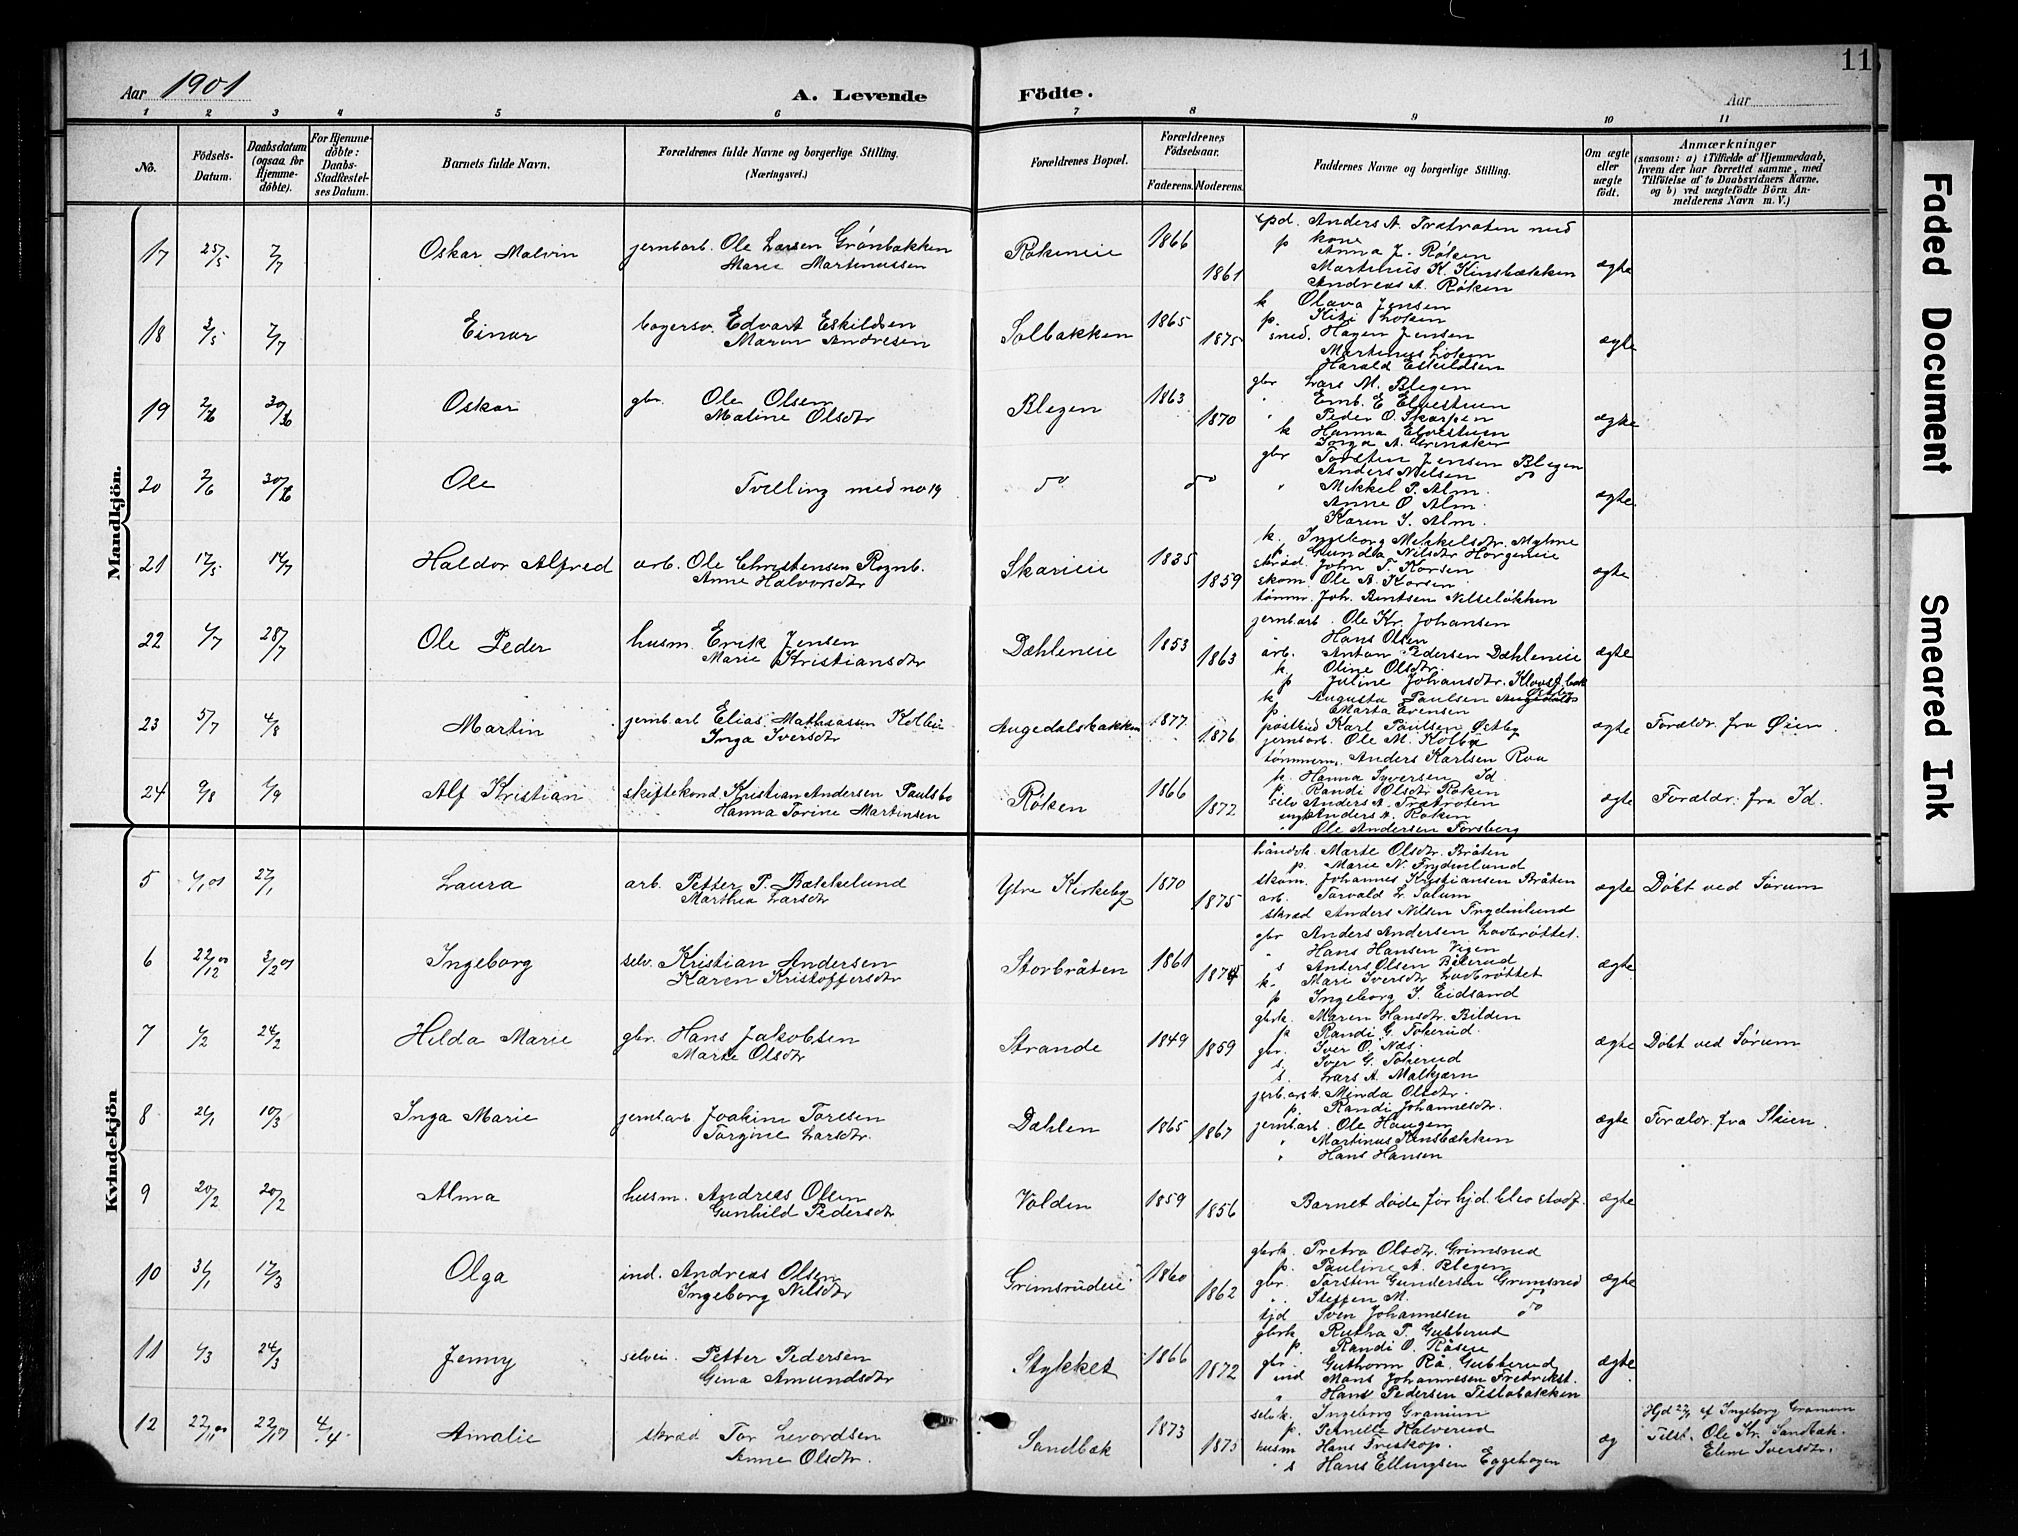 11
Aar 1901
A. Levende
Födte.
Aar
1 2 3 4 5 6 7 8 9 10 11
No.
Födsels-Datum.
Daabsdatum (ogsaa for Hjemme-döbte).
For Hjemme-döbte: Daabs-Stadfæstel-ses Datum.
Barnets fulde Navn.
Forældrenes fulde Navne og borgerlige Stilling.
(Næringsvei.)
Forældrenes Bopæl.
Forældrenes Födselsaar.
Faderens. Moderens.
Faddernes Navne og borgerlige Stilling.
Om ægte eller uægte födt.
Anmærkninger
(saasom: a) i Tilfælde af Hjemmedaab,
hvem der har forrettet samme, med
Tilföielse af to Daabsvidners Navne.
og b) ved uægtefödte Börn An-
melderens Navn m. V.)
Mandkjön.
17 25/5 7/7 Oskar Malvin jernbarb. Ole Larsen Grönbakken
Marie Martinussen
Rökeneie 1866 1861
Anders A. Trætroten med
p kone
Anna J. Röken
Martinus K. Kinsbækken
Andreas A. Röken
ægte
18 3/5 7/7 Einar bagersv. Edvart Eskildsen
Maren Andresen
Solbakken 1865 1875
k Olava Jensen
p. Kizi Löken
sned. Hagen Jensen
Martinus Löken
Harald Eskildsen
ægte
19 2/6 30/6 Oskar gbr. Ole Olsen
Maline Olsdtr
Blegen 1863 1870
gbr Lars M. Blegen
" Emb. E Elvestuen
" Peder O. Skarpen
k Hanna Elvestuen
Inga A. Grinaker
ægte
20 2/6 30/6 Ole Tvilling med no 19
do do
gbr Torsten Jensen Blegen
Anders Nilsen do
" Mikkel P. Alm.
Anne O. Alm.
Karen I. Alm.
ægte.
21 17/5 14/7 Haldor Alfred arb. Ole Christensen Rognb.
Anne Halvorsdtr
Skarieie 1835 1859
k. Ingeborg Mikkelsdtr. Mylme
p. Gunda Nilsdtr Horgeneie
skræd. John T. Korsen
skom. Ole A. Korsen
tömmr. Joh. Bentsen Nilselökken
ægte
22 4/7 28/7 Ole Peder husm. Erik Jensen
Marie Kristiansdtr
Dæhleneie 1853 1863
jernbarb. Ole Kr. Johansen
Hans Olsen
arb. Anton Pedersen Dæhleneie
k. Oline Olsdtr.
p Juline Johansdtr.
ægte
23 5/7 4/8 Martin jernbarb Elias Mathiassen Kolbu
Inga Iversdtr
Augedalsbakken 1877 1876
k Augusta Paulsen
p Marta Evensen
postbud Karl Paulsen Östby
jernbarb. Ole M. Kolbu
tömmerm. Anders Karlsen Roa
ægte Forældr. fra Øien.
24 9/8 1/9 Alf Kristian skiftekond. Kristian Andersen Paulsbo
Hanna Torine Martinsen
Röken 1866 1872
k. Hanna Syversen Id.
p. Randi Olsdtr Röken
selv Anders A. Trætroten
ungk Anders A. Röken
" Ole Andersen Forsberg
ægte Forældr. fra Id.
Kvindekjön
5 4/1 01 27/1 Laura arb. Petter P. Bækkelund
Marthea Larsdtr
Ytre Kirkeby 1870 1875
håndvk. Marte Olsdtr. Bråten
p. Marie N. Frydenlund
skom. Johannes Kristiansen Bråten
arb. Torvald L. Solum
skræd Anders Nilsen Frydenlund
ægte Döbt ved Sörum
6 22/12 00 3/2 01 Ingeborg selv. Kristian Andersen
Karen Kristoffersdtr
Storbråten 1861 1874
gbr Anders Andersen Lovbröttet.
" Hans Hansen Vigen
s Anders Olsen Bilerud
k. Mari Iversdtr Lovbröttet
p Ingeborg I. Eidsand
ægte
7 4/2 24/2 Hilda Marie gbr. Hans Jakobsen
Marte Olsdtr
Strande 1849 1859
gbrk. Maren Hansdtr. Bilden
p. Randi G. Tokerud.
gbr. Iver O. Næs.
s. Iver G. Tokerud
s. Lars A. Malkjærn
ægte Döbt ved Sörum
8 26/1 10/3 Inga Marie jernbarb Joakim Toresen
Torgine Larsdtr.
Dæhlen 1865 1867
jerbarb.k. Minda Olsdtr.
p. Randi Johannesdtr.
jernbarb. Ole Haugen
" Martinus Kinsbækken
" Hans Hansen
ægte Forældr. fra Skien.
9 20/2 20/2 Alma husm. Andreas Olsen
Gunhild Pedersdtr
Volden 1859 1856
Barnet döde för hjd. blev stadf.
ægte
10 31/1 17/3 Olga ind. Andreas Olsen
Ingeborg Nilsdtr
Grimsrudeie 1860 1862
gbrk. Petra Olsdtr. Grimsrud
p. Pauline A. Blegen
gbr. Torsten Gundersen Grimsrud
" Steffen M. do
tjd Sven Johannesen
ægte
11 4/3 24/3 Jenny selvei. Petter Pedersen
Gina Amundsdtr
Stykket 1866 1872
gbrk Rutha P. Gubberud
p. Randi O. Råseie
gbr. Guthorm Rå. Gubberud
ind Mons Johannesen Fredrikst.
" Hans Pedersen Tistobakken
ægte
12 22/11 00 22/1 01 4/4 Amalie skræd Tor Levordsen
Anne Olsdtr.
Sandbak 1873 1875
selvk. Ingeborg Granum
p. Pernille Kalverud
husm Hans Friskop.
" s Hans Ellingsen Eggehagen
æg
Hjd 22/1 af Ingeborg Granum
Tilst. Ole Kr. Sandbæk.
Eline Iversdtr.
Faded Document
Smeared Ink